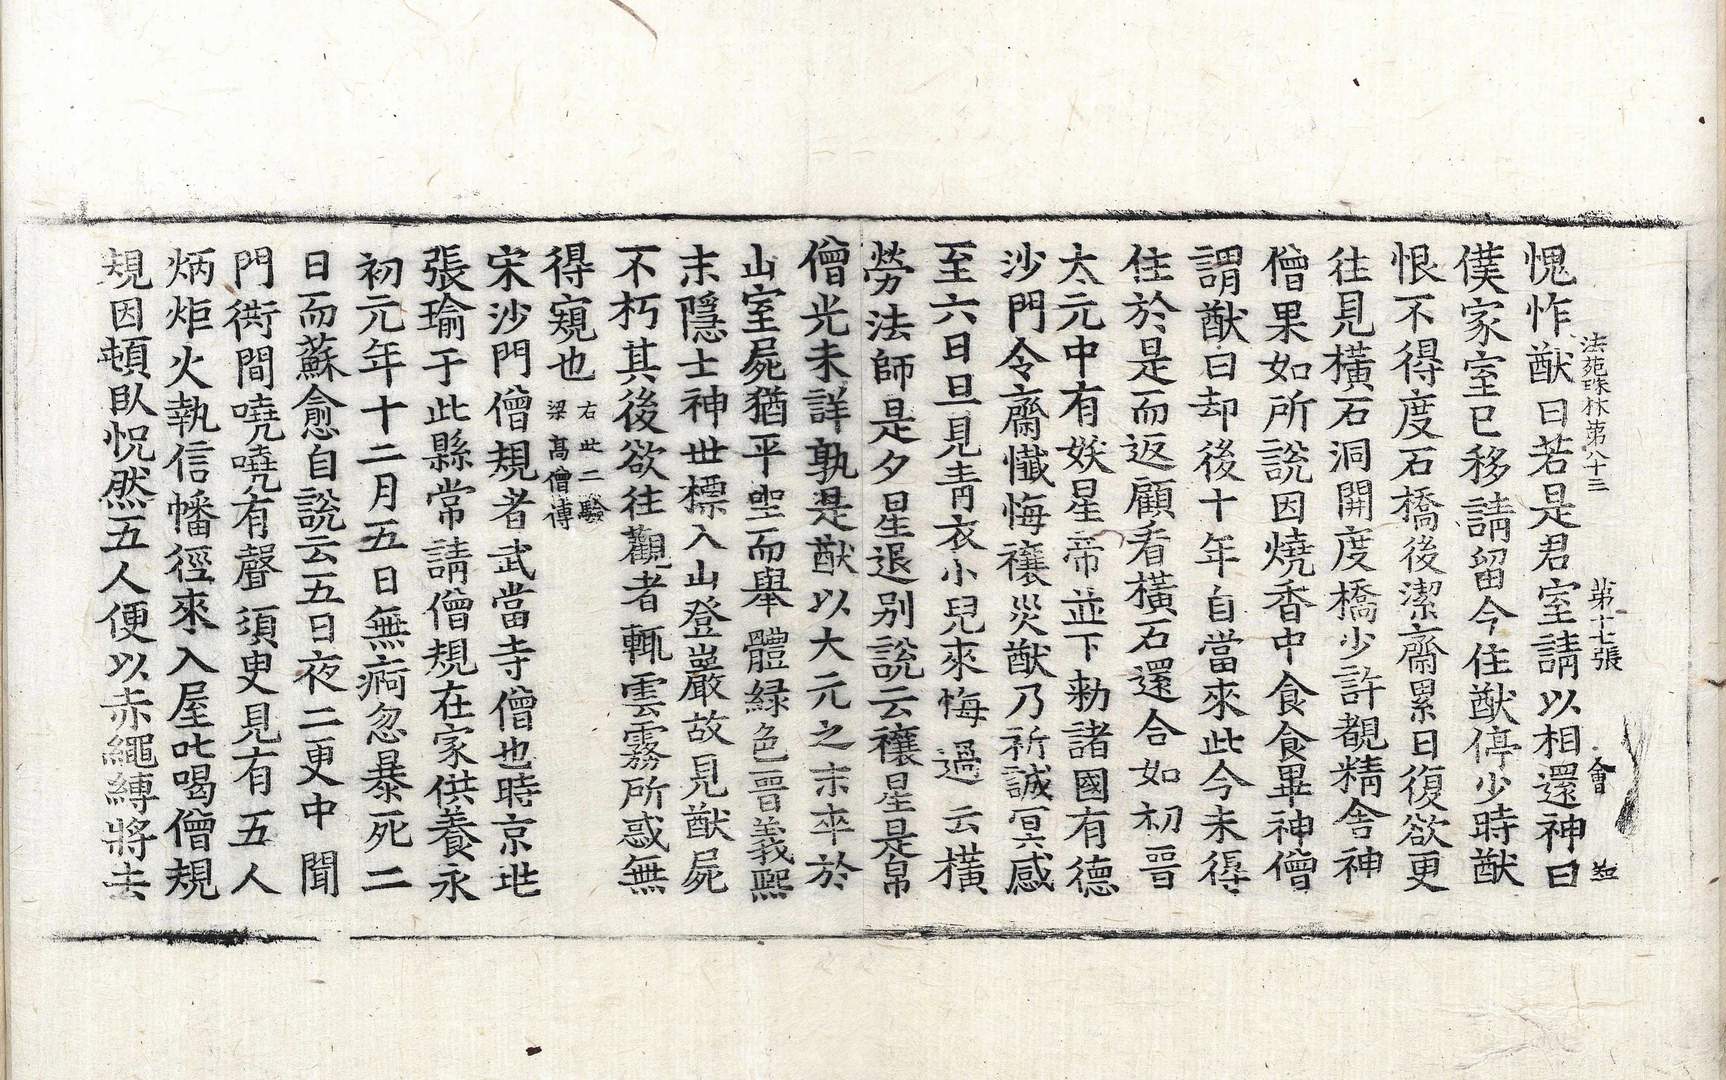 法苑珠林第八十三 第十七張 會
愧怍猷曰若是君室請以相還神曰
僕家室已移請留今住猷停少時猷
恨不得度石橋後潔齋累日復欲更
往見橫石洞開度橋少許覩精舍神
僧果如所說因燒香中食食畢神僧
謂猷曰却後十年自當來此今未得
住於是而返顧看橫石還合如初晉
太元中有妖星帝並下勅諸國有德
沙門令齋懺悔禳災猷乃祈誠冥感
至六日旦見青衣小兒來悔過云橫
勞法師是夕星退別說云禳星是帛
僧光未詳孰是猷以大元之末卒於
山室屍猶平坐而舉體綠色晉義熙
末隱士神世標入山登巖故見猷屍
不朽其後欲往觀者輒雲霧所惑無
得窺也 右此二驗 梁高僧傳
宋沙門僧規者武當寺僧也時京地
張瑜于此縣常請僧規在家供養永
初元年十二月五日無痾忽暴死二
日而蘇愈自說云五日夜二更中聞
門衖間嘵嘵有聲須臾見有五人
炳炬火執信幡徑來入屋叱喝僧規
規因頓臥怳然五人便以赤繩縛將去